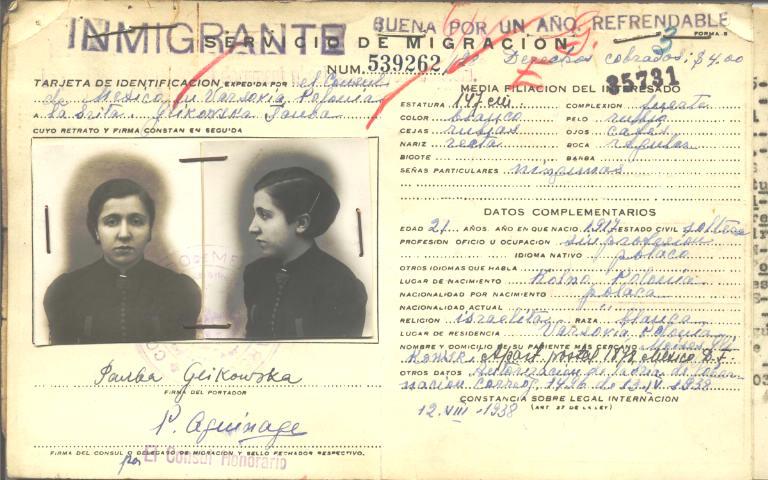 INMIGRANTE BUENA POR UN AÑO, REFRENDABLE
FORMA 5
SERVICIO DE MIGRACION
NUM. 539262 Derechos cobrados: $4.00
35731
TARJETA DE IDENTIFICACION EXPEDIDA POR el Consul
de Mexico en Varsovia Polonia
A la Srita. Glikowska Pauba
CUYO RETRATO Y FIRMA CONSTAN EN SEGUIDA
Pauba Glikowska
FIRMA DEL PORTADOR
P. Aguinage
FIRMA DEL CONSUL O DELEGADO DE MIGRACION Y SELLO FECHADOR RESPECTIVO.
por El Consul Honorario
MEDIA FILIACION DEL INTERESADO
ESTATURA 147 cm COMPLEXION
COLOR blanco PELO rubio
CEJAS rubias OJOS cafes
NARIZ recta BOCA regular
BIGOTE BARBA
SEÑAS PARTICULARES ningunas
DATOS COMPLEMENTARIOS
EDAD 21 AÑOS. AÑO EN QUE NACIO 1917 ESTADO CIVIL soltera
PROFESION OFICIO U OCUPACION sin profesion
IDIOMA NATIVO polaco
OTROS IDIOMAS QUE HABLA
LUGAR DE NACIMIENTO Kolno Polonia
NACIONALIDAD POR NACIMIENTO polaca
NACIONALIDAD ACTUAL
RELIGION israelita RAZA blanca
LUGAR DE RESIDENCIA Varsovia Polonia
NOMBRE Y DOMICILIO DE SU PARIENTE MAS CERCANO Moises
Apart. postal 1872 Mexico D.F.
OTROS DATOS Autorizacion de la Sria de Gober
nacion Correog. 1426 de 13-IV-1938
CONSTANCIA SOBRE LEGAL INTERNACION
12-VIII-1938 (ART 37 DE LA LEY)